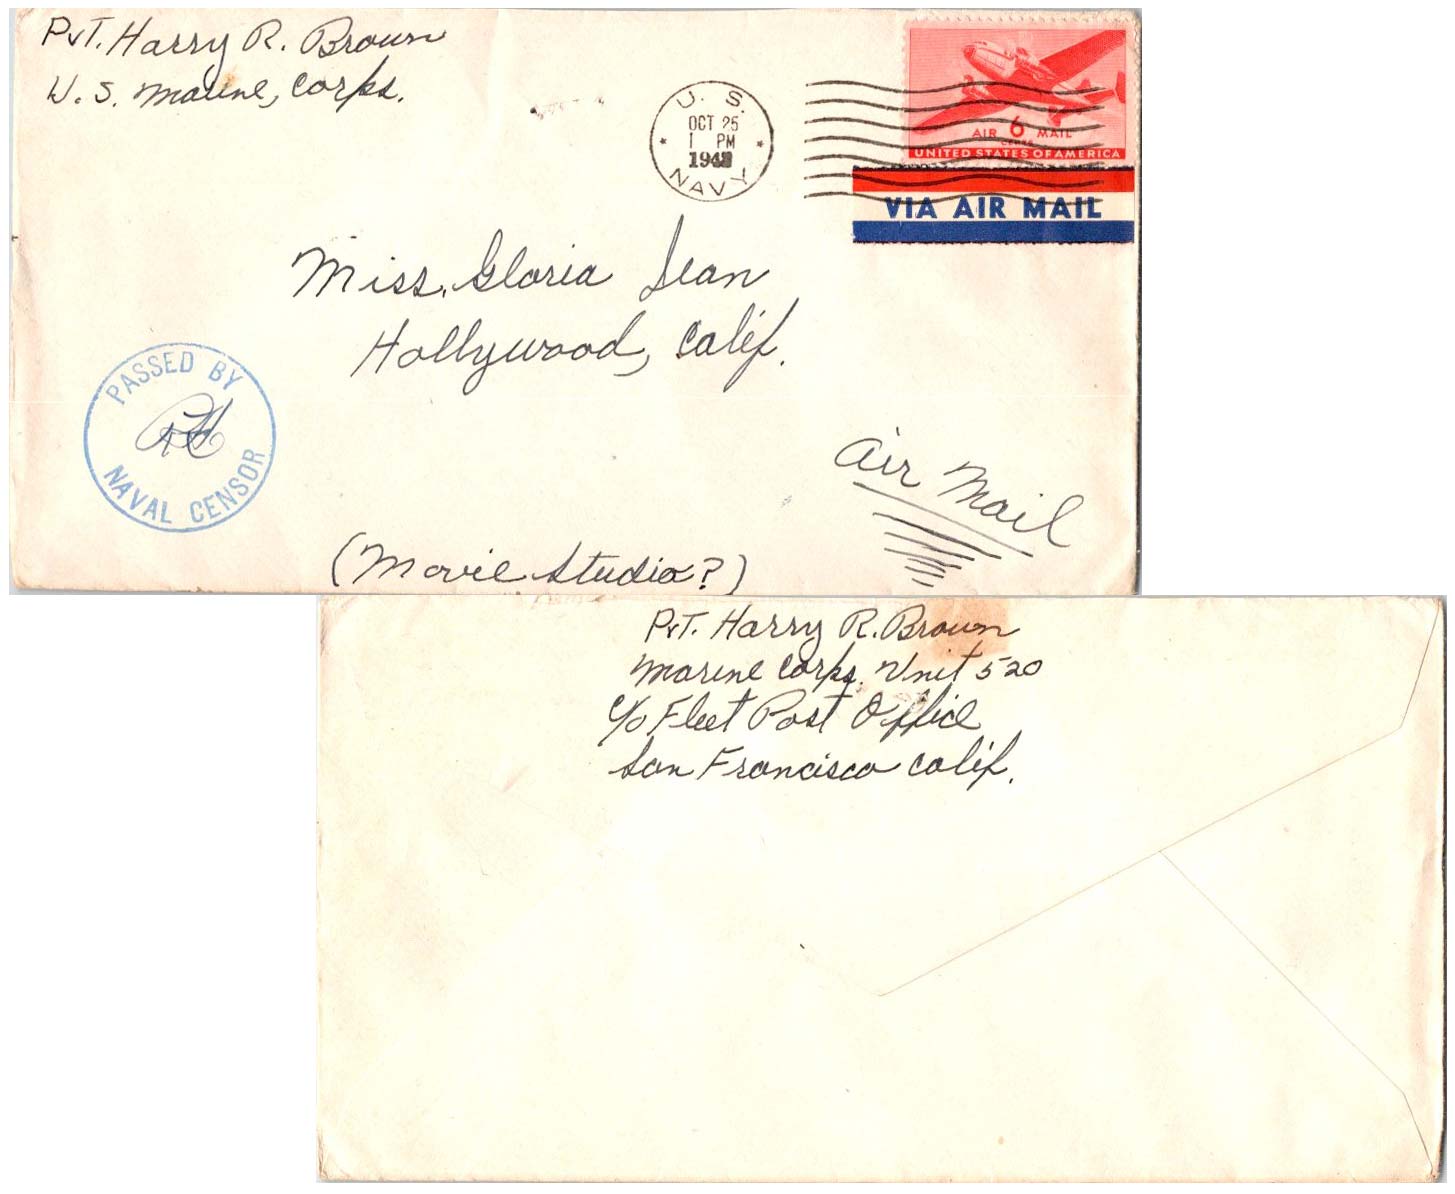 PvT. Harry R. Brown
U. S. Marine, Corps.
U. S.
OCT 25
1 PM
NAVY
AIR 6 MAIL
CENTS
UNITED STATES OF AMERICA
VIA AIR MAIL
Miss. Gloria Jean
Hollywood, Calif.
PASSED BY
NAVAL CENSOR
Air Mail
(Movie Studio?)
PvT. Harry R. Brown
Marine Corps. Unit 520
C/o Fleet Post Office
San Francisco Calif.